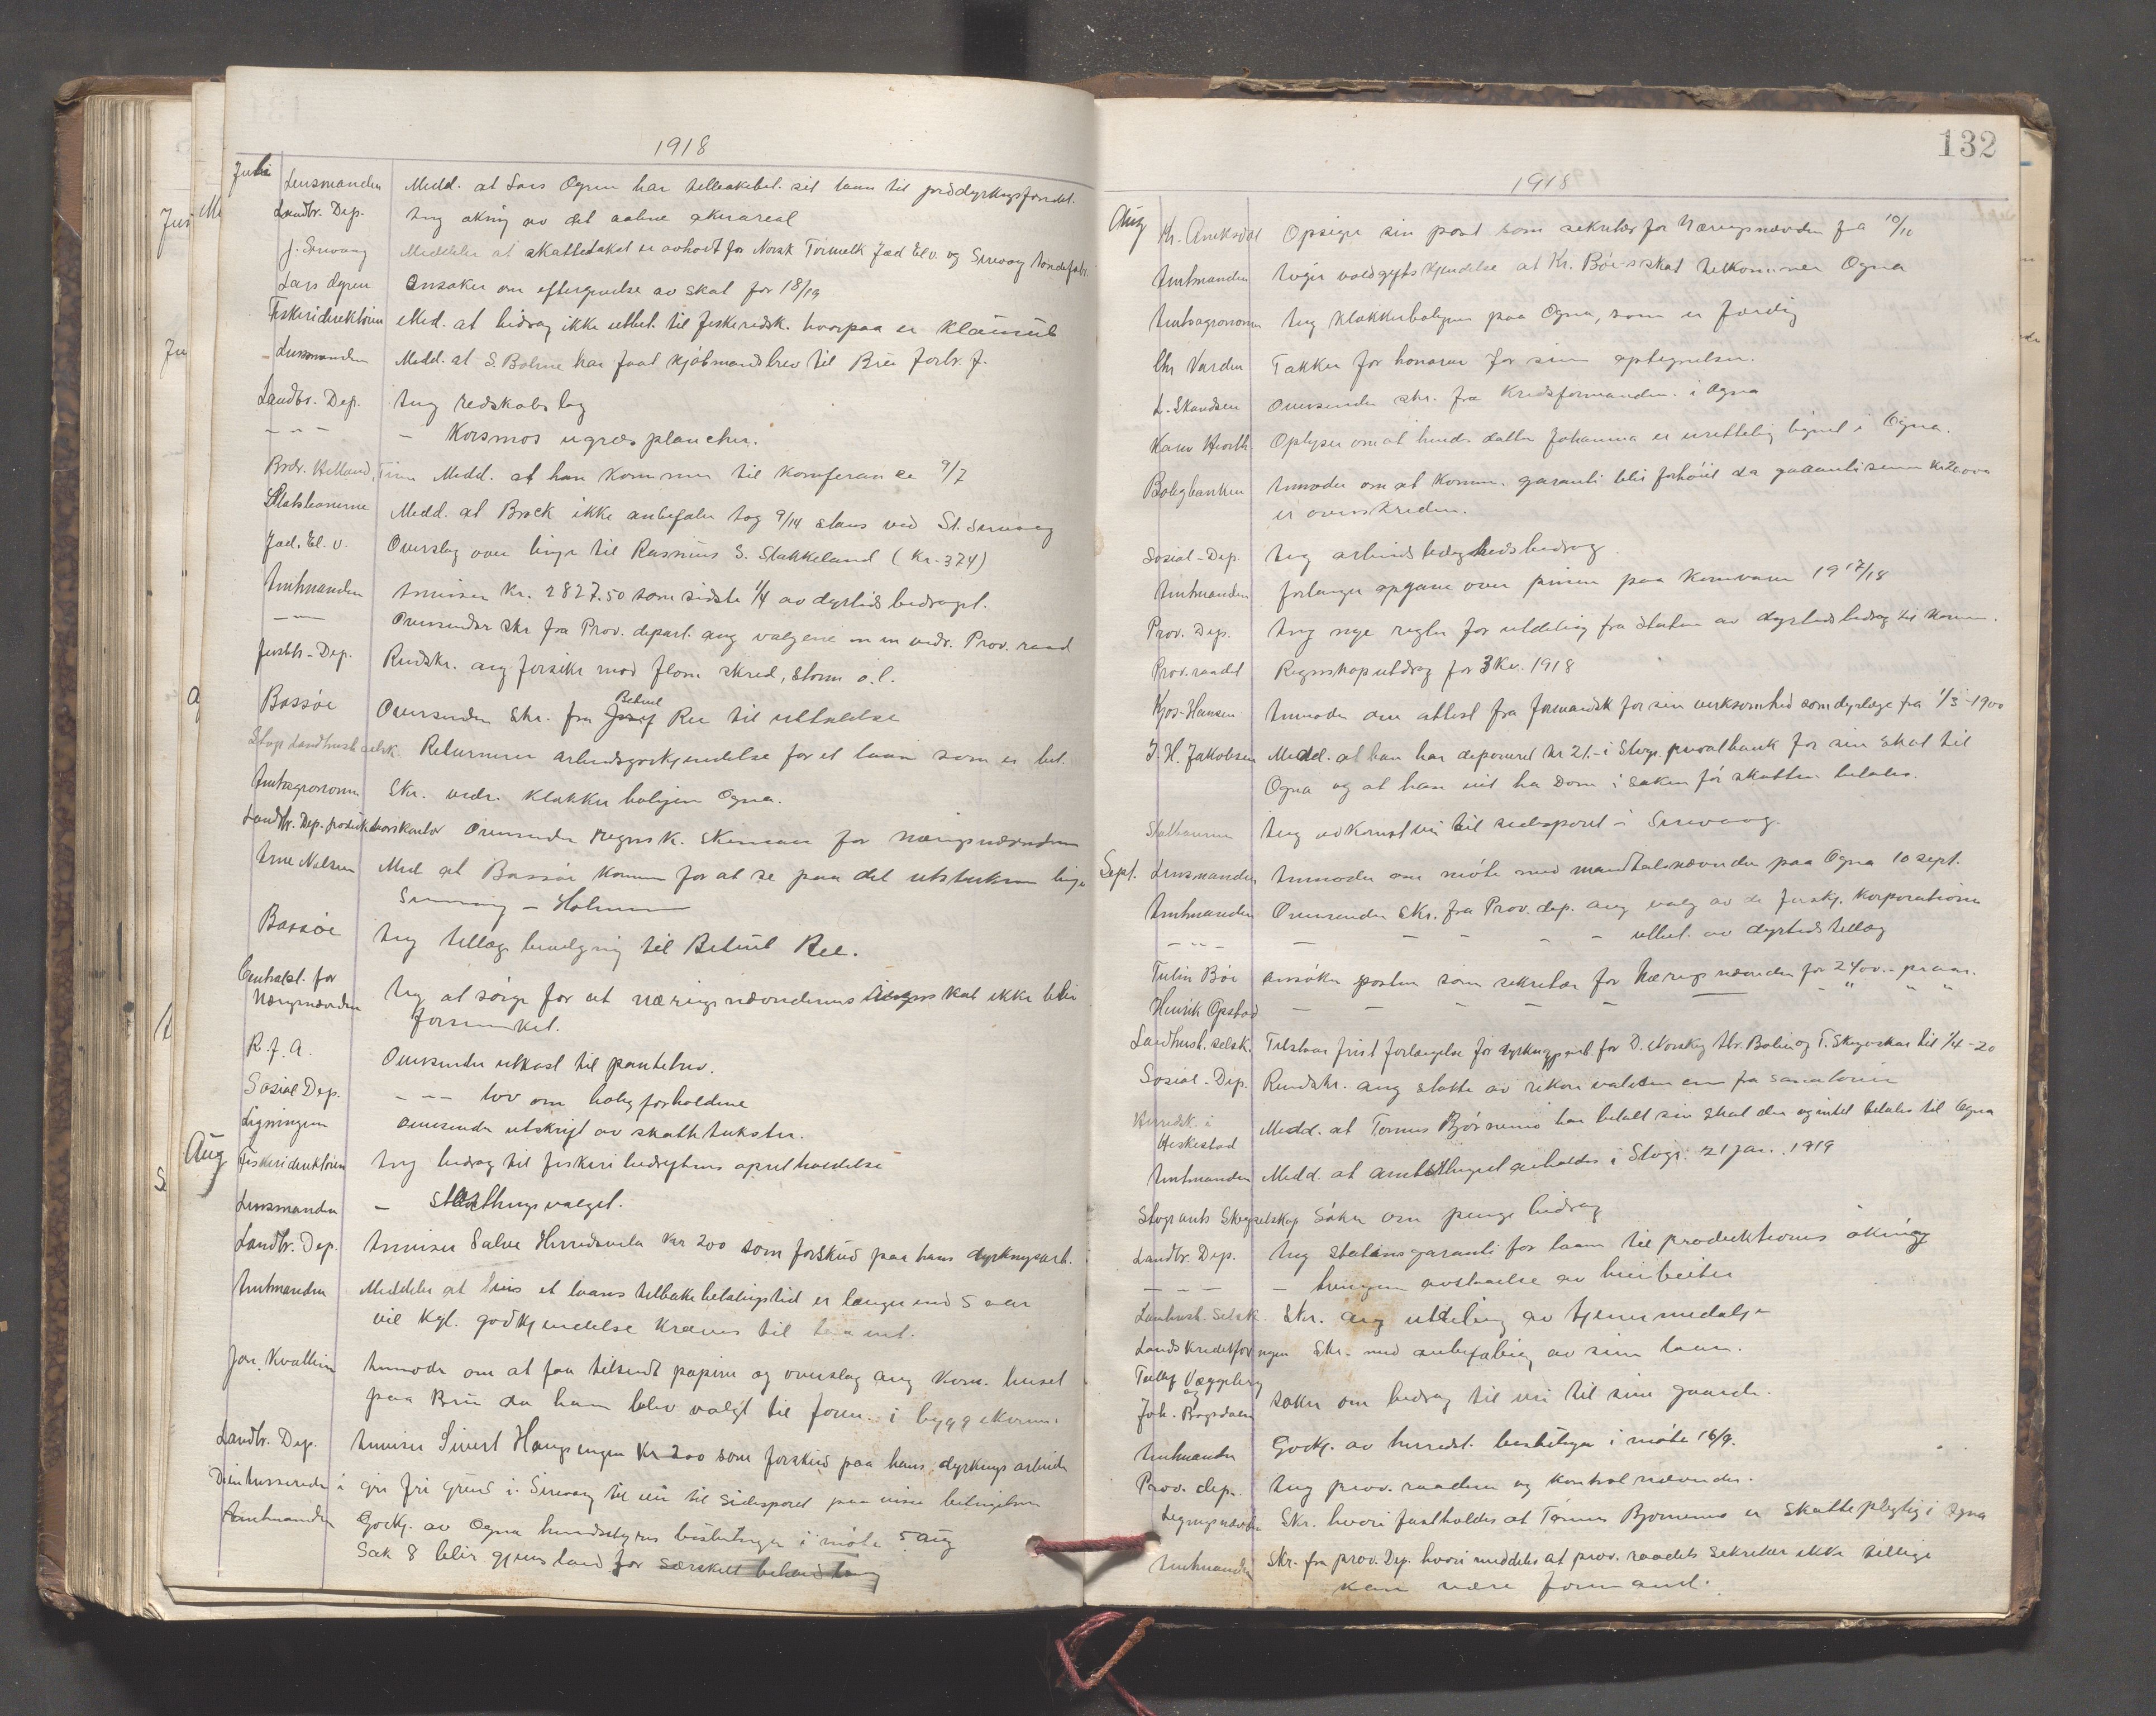 1918
Juli Lensmanden Medd. at Lars Ogren har tilbakebet. sit laan til jorddyrkngsfondet.
Landbr. Dep. Ang økning av det aabne akerareal
J. Sirevaag Meddeler at skattetakst er avholdt for Norsk Tørmelk Jæd El v. og Sirevaag tøndefabr.
Lars Ogren Ansøker om eftergivelse av skat for 18/19
Fiskeridirektøren Med. at bidrag ikke utbet. til fiskeredsk. hvorpaa er klausul
Lensmanden Medd. at S. Bolme har faat kjøbmandsbrev til Brue forbr. f.
Landbr. Dep. Ang redskabslag
- " - - Korsmos ugræsplancher.
Brdr. Helland, Time Medd. at han kommer til konferanse 9/7
Statsbanerne Medd. at Brock ikke anbefaler tog 9/14 stans ved St. Sirevaag
Jæd. El. v. Overslag over linje til Rasmus S. Stokkeland (kr. 374)
Amtmanden Anviser kr. 2827.50 som sidste 1/4 av dyrtidsbidraget.
- " - Oversender skr fra Prov. depart. ang valgene m m vedr. Prov. raad
Justits-Dep. Rundskr. ang forsikr mod flom skred, storm o.l.
Bassøe Oversender skr. fra Josef Betuel Ree til uttalelse
Stvgr Landhush.selsk. Returnerer arbeidsgodkjendelse for et laan som er bet.
Amtsagronom Skr. vedr. klokkerboligen Ogna.
Landbr. Dep. produktionskontor Oversender regnsk. skemaer for næringsnævnden
Arne Nilsen Med at Bassøe kommer for at se paa det utstukne linje
Sirevaag - Holmen
Bassøe Ang tillægsbevilgning til Betuel Ree.
Centralst. for
Næringsnævnden Ang at sørge for at næringsnævndernes regnskat ikke blir
forsinket.
R.f.A. Oversender utkast til pantebrev.
Sosial Dep. - " - lov om boligforholdene
Ligningen Oversender utskrift av skattetakster.
Aug Fiskeridirektøren Ang bidrag til fiskeribedriftens opretholdelse
Lensmanden - Stortingsvalget.
Landbr. Dep. Anviser Salve Herredsvela kr 200 som forskud paa hans dyrkngsarb.
Amtmanden Meddeler at hvis et laans tilbakebetalingstid er længer end 5 aar
vil kgl. godkjendelse kræves til laanet.
Jon Kvalbein Anmoder om at faa tilsendt papirer og overslag ang kom. huset
paa Brue da han blev valgt til form. i byggekomm.
Landbr. Dep. Anviser Sivert Hangsingen kr 200 som forskud paa hans dyrkings arbeide
gir fri grund i Sirevaag til vei til sidesporet paa visse betingelser
Amtmanden Godkj. av Ogna herredsstyres beslutninger i møte 5 aug
Sak 8 blir gjenstand for særskilt behandling
132
1918
Aug Kr. Aneksdal Opsiger sin post som sekretær for Næringsnævnden fra 10/10
Amtmanden Avgir voldgiftskjendelse at Kr. Bøe s skat tilkommer Ogna
Amtsagronom Ang klokkerboligen paa Ogna, som er færdig
Chr Varden Takker for honorar for sine optegnelser.
L. Skandsen Oversender skr. fra kredsformanden i Ogna
Karen Hveth Oplyser om at hendes datter Johanna er urettelig lignet i Ogna.
Boligbanken Anmoder om at komm. garanti blir forhøiet da garantisum kr 20000
er overskreden.
Sosial-Dep. Ang arbeidsledighedsbidrag.
Amtmanden forlanger opgave over prisen paa kornvarer 1917/18
Prov. Dep. Ang nye regler for utdeling fra Staten av dyrtidsbidrag til komm.
Prov.raadet Regnskapsutdrag for 3 kv. 1918
Kjos-Hansen Anmoder om attest fra formandsk for sin virksomhed som dyrlæge fra 1/3 - 1900
J. H. Jakobsen Medd. at han har deponeret kr 21.- i Stvgr. privatbank for sin skat til
Ogna og at han vil ha dom i saken før skatten betales.
Statbanerne Ang adkomstvei til sidesporet i Sirevaag.
Sept. Lensmanden Anmoder om møte med mandtalsnævnden paa Ogna 10 sept.
Amtmanden Oversender skr. fra Prov. dep. ang valg av de forskj. korporationer
- " - - - - - - utbet. av dyrtidstillæg
Tulin Bøe ansøker posten som sekretær for Næringsnævnden for 2400.- pr aar.
Henrik Opstad - - - - - - " " "
Landhush.selsk. Tilstaar frist forlængelse for dyrkngsarb. for O. Norsky Abr. Bolin og T. Skogeskar til 1/4 - 20
Sosial-Dep. Rundskr. ang støtte av rekonvalesenter fra sanatorier
Herredsk. i
Heskestad Medd. at Tønnes Bjørnemo har betalt sin skat der og intet betales til Ogna
Amtmanden Medd. at amtstinget avholdes i Stvgr. 21 jan. 1919
Stvgr amts Skogselskap Søker om penge bidrag
Landbr. Dep. Ang Statens garanti for laan til produktionens økning
- " - - tvungen avstaaelse av havnbeiter
Lanhush. Selsk. Skr. ang utdeling av tjenermedalje
Landskreditforeningen Skr. med anbefaling av sine laan.
Tollef Væggeberg
og
Joh. Bogsdalen søker om bidrag til vei til sine gaarde.
Amtmanden Godkj. av herredst. beslutninger i møte 16/9.
Prov. dep. Ang prov. raadene og kontrolnævnder.
Ligningsnævnden Skr. hvori fastholdes at Tønnes Bjørnemo er skattepligtig i Ogna
Amtmanden Skr. fra prov. Dep. hvori meddeles at prov. raadets sekretær ikke tillige
kan være formand.